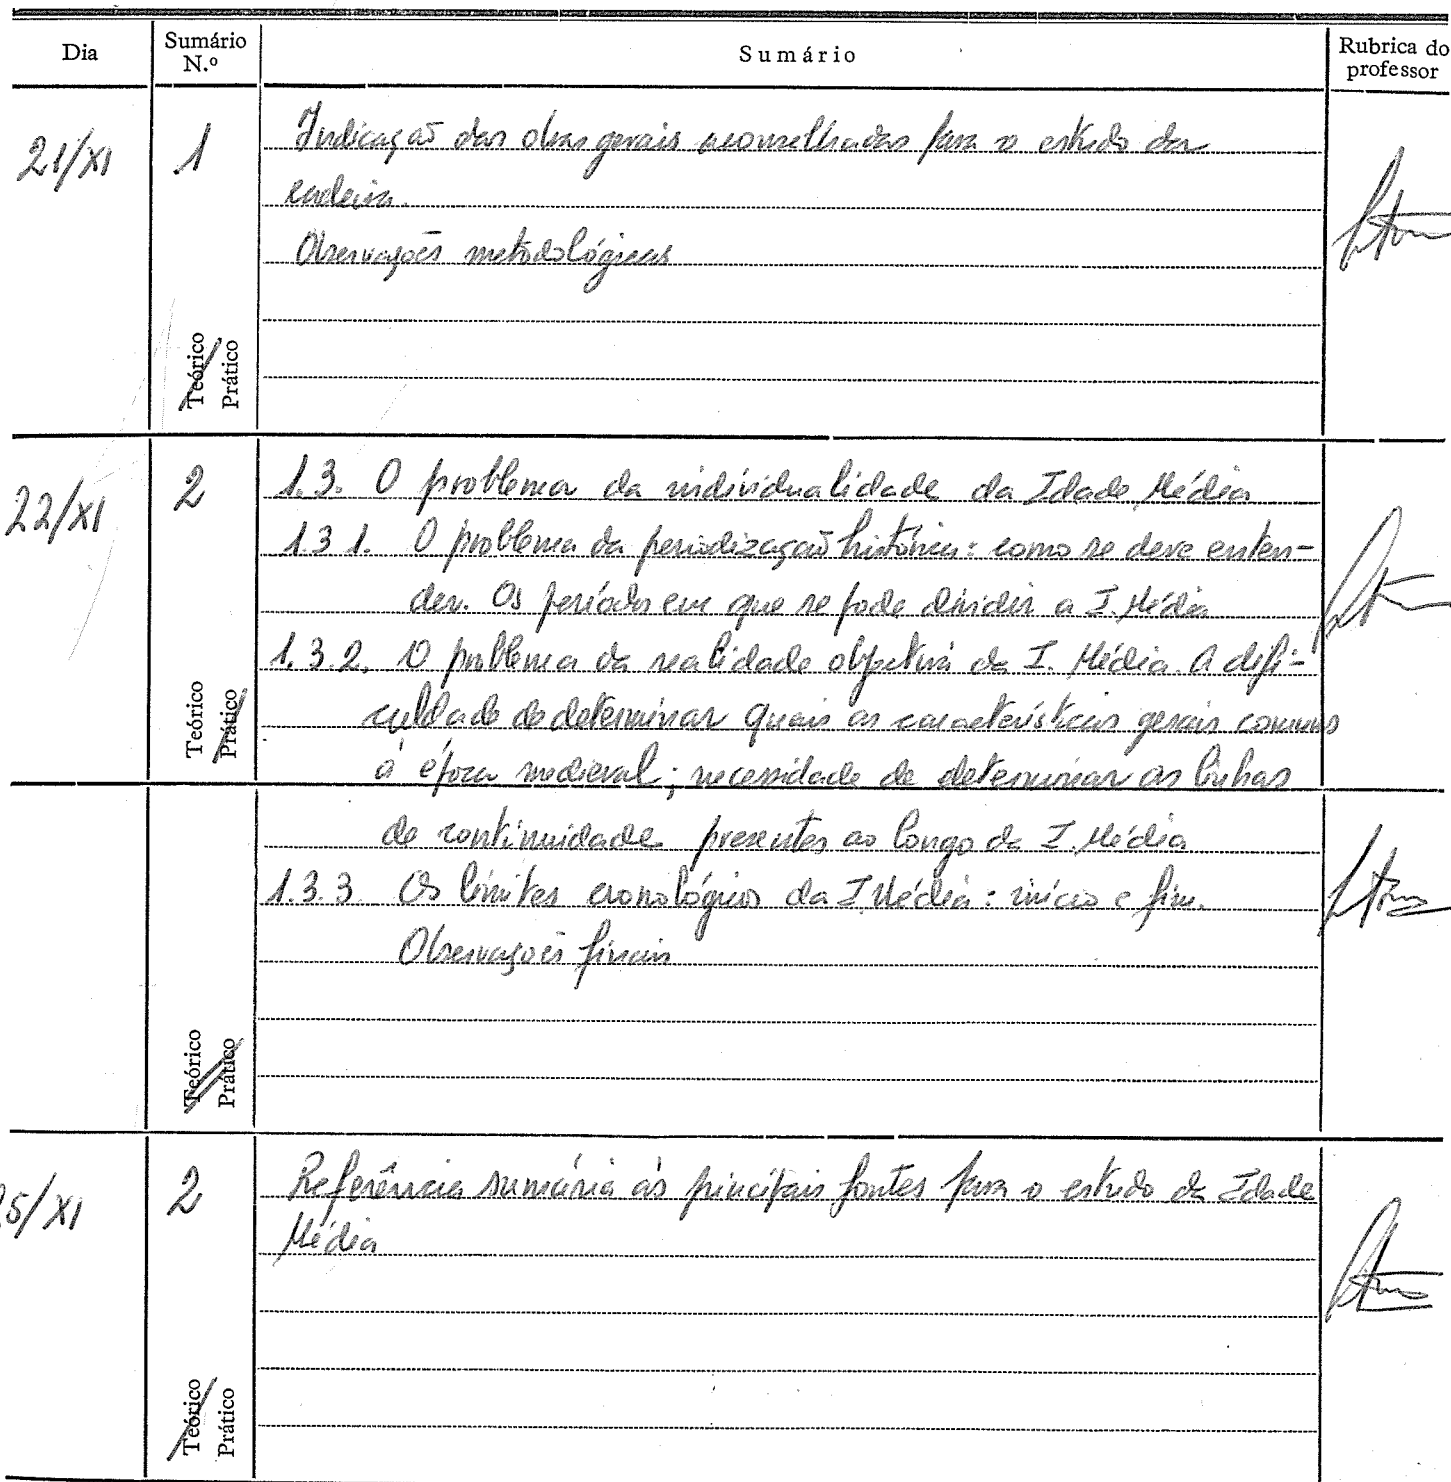 Dia
Sumário N.º
Sumário
Rubrica do professor
21/XI
1
Indicação das obras gerais aconselhadas para o estudo da
cadeira.
Observações metodológicas
Teórico
Prático
22/XI
2
1.3. O problema da individualidade da Idade Média
1.3.1. O problema da periodização histórica: como se deve enten-
der. Os períodos em que se pode dividir a I. Média
1.3.2. O problema da realidade objectiva da I. Média. A difi-
culdade de determinar quais as características gerais comuns
à época medieval; necessidade de determinar as linhas
Teórico
Prático
de continuidade presentes ao longo da I. Média
1.3.3. Os limites cronológicos da I. Média: início e fim.
Observações finais
Teórico
Prático
5/XI
2
Referência sumária às principais fontes para o estudo da Idade
Média
Teórico
Prático